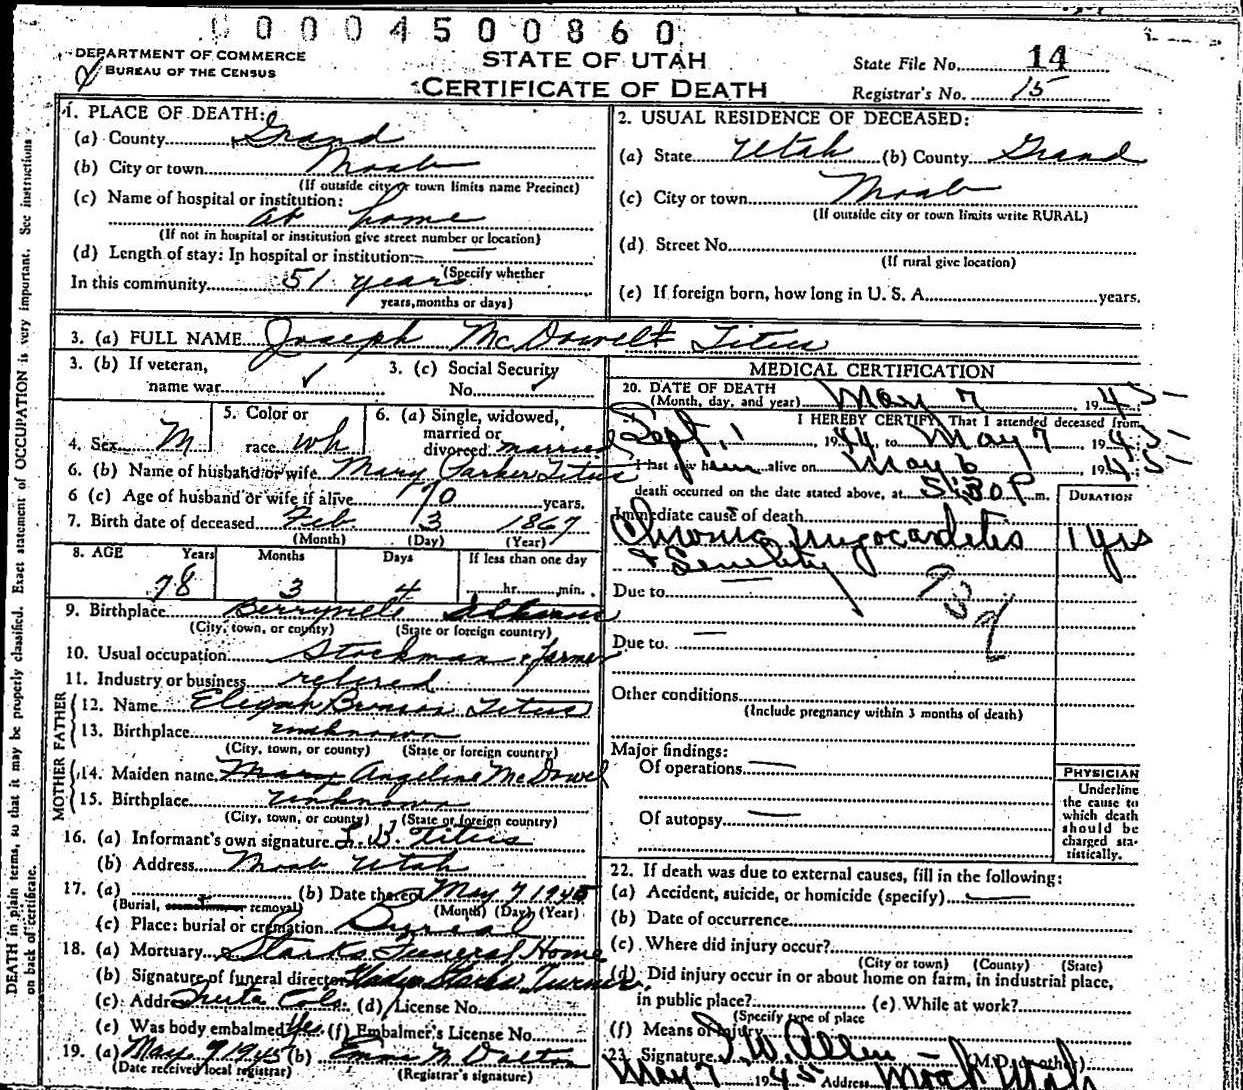 0004500860
DEPARTMENT OF COMMERCE
BUREAU OF THE CENSUS
STATE OF UTAH
CERTIFICATE OF DEATH
State File No. 14
Registrar's No. 15
1. PLACE OF DEATH:
(a) County Grand
(b) City or town Moab
(If outside city or town limits name Precinct)
(c) Name of hospital or institution:
at home
(If not in hospital or institution give street number or location)
(d) Length of stay: In hospital or institution —
(Specify whether
In this community 51 years
years, months or days)
2. USUAL RESIDENCE OF DECEASED:
(a) State Utah (b) County Grand
(c) City or town Moab
(If outside city or town limits write RURAL)
(d) Street No.
(If rural give location)
(e) If foreign born, how long in U. S. A. years.
3. (a) FULL NAME Joseph McDowell Titus
3. (b) If veteran,
name war ✓
3. (c) Social Security
No. ✓
4. Sex M
5. Color or
race wh
6. (a) Single, widowed,
married or
divorced married
6. (b) Name of husband or wife Mary Parker Titus
6 (c) Age of husband or wife if alive 70 years.
7. Birth date of deceased Feb 3 1867
(Month) (Day) (Year)
8. AGE Years Months Days If less than one day
78 3 4 hr. min.
9. Birthplace Berryville Arkansas
(City, town, or county) (State or foreign country)
10. Usual occupation Stockman & farmer
11. Industry or business retired
FATHER
12. Name Elijah Bronson Titus
13. Birthplace unknown
(City, town, or county) (State or foreign country)
MOTHER
14. Maiden name Mary Angeline McDowel
15. Birthplace unknown
(City, town, or county) (State or foreign country)
16. (a) Informant's own signature L. B. Titus
(b) Address Moab Utah
17. (a) (b) Date thereof May 9 1945
(Burial, cremation, or removal) (Month) (Day) (Year)
(c) Place: burial or cremation Burial
18. (a) Mortuary Starks Funeral Home
(b) Signature of funeral director Gladys Starks Turner
(c) Address Fruita Colo. (d) License No.
(e) Was body embalmed Yes (f) Embalmer's License No.
19. (a) May 9 1945 (b) Emma N Dalton
(Date received local registrar) (Registrar's signature)
MEDICAL CERTIFICATION
20. DATE OF DEATH
(Month, day, and year) May 7 1945
I HEREBY CERTIFY, That I attended deceased from
Sept. 1 1944 to May 7 1945
I last saw him alive on May 6 1945
death occurred on the date stated above, at 5:30 P. m.
DURATION
Immediate cause of death
Chronic myocarditis 1 yrs
& Senility
93d
Due to
Due to. —
Other conditions
(Include pregnancy within 3 months of death)
Major findings:
Of operations —
Of autopsy —
PHYSICIAN
Underline
the cause to
which death
should be
charged sta-
tistically.
22. If death was due to external causes, fill in the following:
(a) Accident, suicide, or homicide (specify) —
(b) Date of occurrence
(c) Where did injury occur?
(City or town) (County) (State)
(d) Did injury occur in or about home on farm, in industrial place,
in public place? (e) While at work?
(Specify type of place
(f) Means of injury
23. Signature I. W. Allen — (M.D. or other)
May 7 1945 Address Moab Utah
DEATH in plain terms, so that it may be properly classified. Exact statement of OCCUPATION is very important. See instructions
on back of certificate.